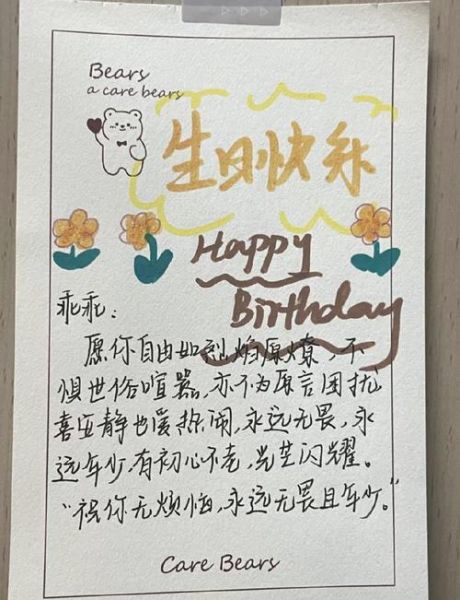 Bears
a care bears
生日快乐
Happy
Birthday
乖乖：
愿你自由如烈焰原燎，不
惧世俗喧嚣，亦不为原言困扰
喜安静也爱热闹，永远无畏，永
远年少，有初心不老，光芒闪耀。
“祝你无烦恼，永远无畏且年少。”
Care Bears